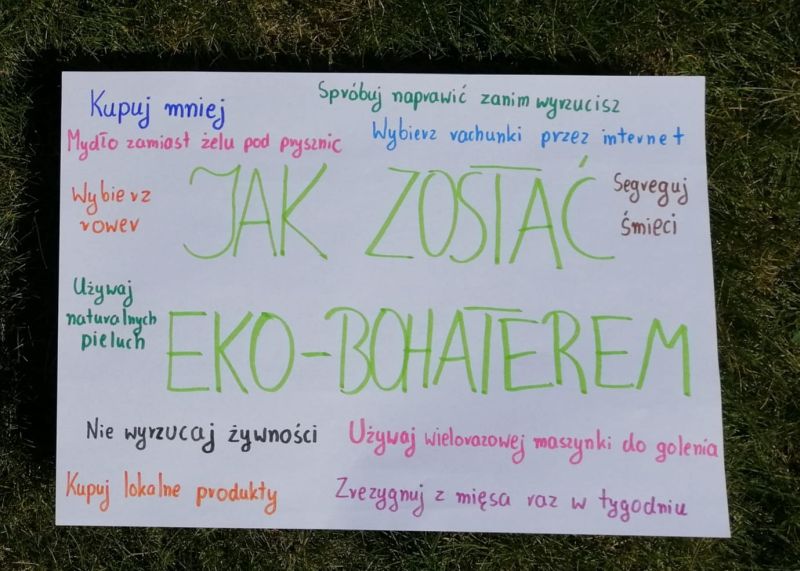 Kupuj mniej
Spróbuj naprawić zanim wyrzucisz
Mydło zamiast żelu pod prysznic
Wybierz rachunki przez internet
Wybierz
rower
JAK ZOSTAĆ
Segreguj
śmieci
Używaj
naturalnych
pieluch
EKO-BOHATEREM
Nie wyrzucaj żywności
Używaj wielorazowej maszynki do golenia
Kupuj lokalne produkty
Zrezygnuj z mięsa raz w tygodniu